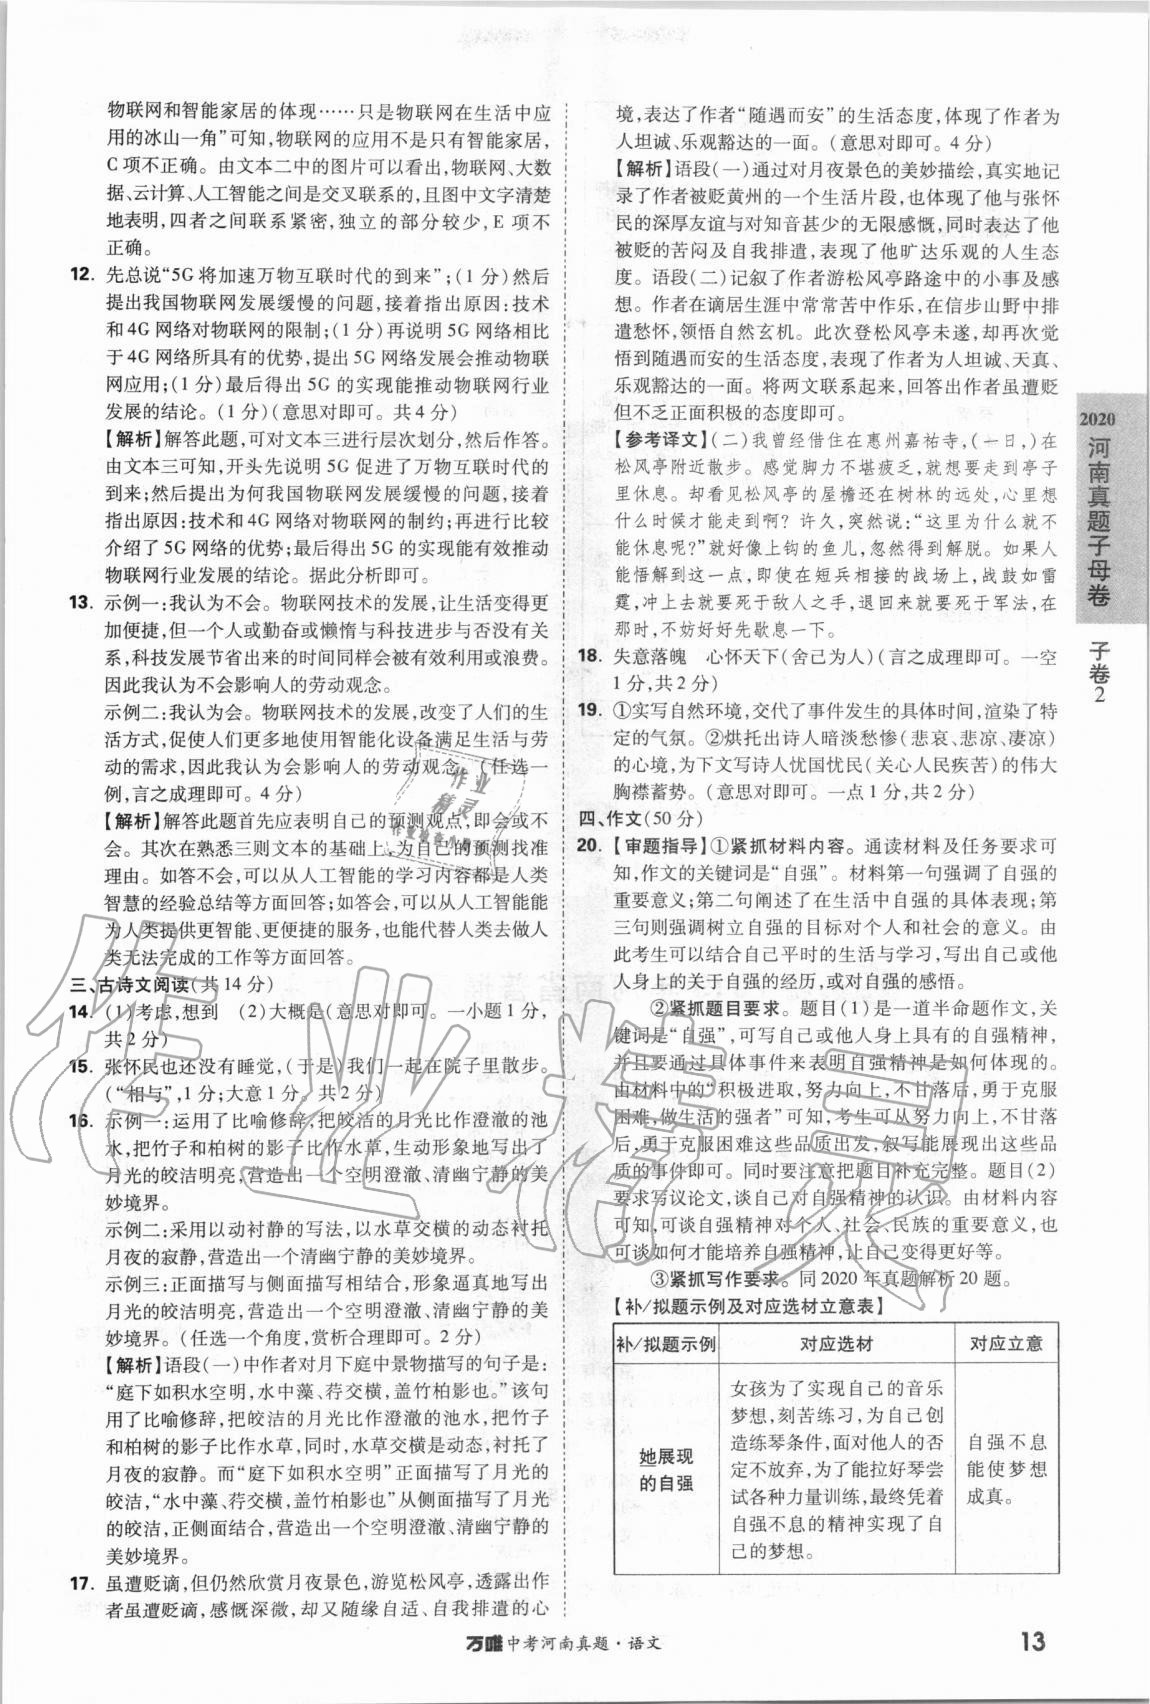 物联网和智能家居的体现……只是物联网在生活中应
用的冰山一角”可知,物联网的应用不是只有智能家居,
C 项不正确。由文本二中的图片可以看出,物联网、大数
据、云计算、人工智能之间是交叉联系的,且图中文字清楚
地表明,四者之间联系紧密,独立的部分较少,E 项不
正确。
12. 先总说“5G 将加速万物互联时代的到来”;(1 分)然后
提出我国物联网发展缓慢的问题,接着指出原因:技术
和 4G 网络对物联网的限制;(1 分)再说明 5G 网络相比
于 4G 网络所具有的优势,提出 5G 网络发展会推动物联
网应用;(1 分)最后得出 5G 的实现能推动物联网行业
发展的结论。(1 分)(意思对即可。共 4 分)
【解析】解答此题,可对文本三进行层次划分,然后作答。
由文本三可知,开头先说明 5G 促进了万物互联时代的
到来;然后提出为何我国物联网发展缓慢的问题,接着
指出原因:技术和 4G 网络对物联网的制约;再进行比较
介绍了 5G 网络的优势;最后得出 5G 的实现能有效推动
物联网行业发展的结论。据此分析即可。
13. 示例一:我认为不会。物联网技术的发展,让生活变得更
加便捷,但一个人或勤奋或懒惰与科技进步与否没有关
系,科技发展节省出来的时间同样会被有效利用或浪费。
因此我认为不会影响人的劳动观念。
示例二:我认为会。物联网技术的发展,改变了人们的生
活方式,促使人们更多地使用智能化设备满足生活与劳
动的需求,因此我认为会影响人的劳动观念。(任选一
例,言之成理即可。4 分)
【解析】解答此题首先应表明自己的预测观点,即会或不
会。其次在熟悉三则文本的基础上,为自己的预测找准
理由。如答不会,可以从人工智能的学习内容都是人类
智慧的经验总结等方面回答;如答会,可以从人工智能能
为人类提供更智能、更便捷的服务,也能代替人类去做人
类无法完成的工作等方面回答。
三、古诗文阅读(共 14 分)
14. (1)考虑,想到 (2)大概是(意思对即可。一小题 1 分,
共 2 分)
15. 张怀民也还没有睡觉,(于是)我们一起在院子里散步。
(“相与”,1 分;大意 1 分。共 2 分)
16. 示例一:运用了比喻修辞,把皎洁的月光比作澄澈的池
水,把竹子和柏树的影子比作水草,生动形象地写出了
月光的皎洁明亮,营造出一个空明澄澈、清幽宁静的美
妙境界。
示例二:采用以动衬静的写法,以水草交横的动态衬托
月夜的寂静,营造出一个清幽宁静的美妙境界。
示例三:正面描写与侧面描写相结合,形象逼真地写出
月光的皎洁明亮,营造出一个空明澄澈、清幽宁静的美妙
境界。(任选一个角度,赏析合理即可。2 分)
【解析】语段(一)中作者对月下庭中景物描写的句子是:
“庭下如积水空明,水中藻、荇交横,盖竹柏影也。”该句
用了比喻修辞,把皎洁的月光比作澄澈的池水,把竹子
和柏树的影子比作水草,同时,水草交横是动态,衬托了
月夜的寂静。而“庭下如积水空明”正面描写了月光的
皎洁,“水中藻、荇交横,盖竹柏影也”从侧面描写了月光
的皎洁,正侧面结合,营造出一个空明澄澈、清幽宁静的
美妙境界。
17. 虽遭贬谪,但仍然欣赏月夜景色,游览松风亭,透露出作
者虽遭贬谪,感慨深微,却又随缘自适、自我排遣的心
境,表达了作者“随遇而安”的生活态度,体现了作者为
人坦诚、乐观豁达的一面。(意思对即可。4 分)
【解析】语段(一)通过对月夜景色的美妙描绘,真实地记
录了作者被贬黄州的一个生活片段,也体现了他与张怀
民的深厚友谊与对知音甚少的无限感慨,同时表达了他
被贬的苦闷及自我排遣,表现了他旷达乐观的人生态
度。语段(二)记叙了作者游松风亭路途中的小事及感
想。作者在谪居生涯中常常苦中作乐,在信步山野中排
遣愁怀,领悟自然玄机。此次登松风亭未遂,却再次觉
悟到随遇而安的生活态度,表现了作者为人坦诚、天真、
乐观豁达的一面。将两文联系起来,回答出作者虽遭贬
但不乏正面积极的态度即可。
【参考译文】(二)我曾经借住在惠州嘉祐寺,(一日,)在
松风亭附近散步。感觉脚力不堪疲乏,就想要走到亭子
里休息。却看见松风亭的屋檐还在树林的远处,心里想
什么时候才能走到啊?许久,突然说:“这里为什么就不
能休息呢?”就好像上钩的鱼儿,忽然得到解脱。如果人
能悟到这一点,即使在短兵相接的战场上,战鼓如雷
霆,冲上去就要死于敌人之手,退回来就要死于军法,在
那时,不妨好好先歇息一下。
18. 失意落魄 心怀天下(舍己为人)(言之成理即可。一空
1 分,共 2 分)
19. ①实写自然环境,交代了事件发生的具体时间,渲染了特
定的气氛。②烘托出诗人暗淡愁惨(悲哀、悲凉、凄凉)
的心境,为下文写诗人忧国忧民(关心人民疾苦)的伟大
胸襟蓄势。(意思对即可。一点 1 分,共 2 分)
四、作文(50 分)
20. 【审题指导】①紧抓材料内容。通读材料及任务要求可
知,作文的关键词是“自强”。材料第一句强调了自强的
重要意义;第二句阐述了在生活中自强的具体表现;第
三句则强调树立自强的目标对个人和社会的意义。由
此考生可以结合自己平时的生活与学习,写出自己或他
人身上的关于自强的经历,或对自强的感悟。
②紧抓题目要求。题目(1)是一道半命题作文,关
键词是“自强”,可写自己或他人身上具有的自强精神,
并且要通过具体事件来表明自强精神是如何体现的。
由材料中的“积极进取,努力向上,不甘落后,勇于克服
困难,做生活的强者”可知,考生可从努力向上、不甘落
后,勇于克服困难这些品质出发,叙写能展现出这些品
质的事件即可。同时要注意把题目补充完整。题目(2)
要求写议论文,谈自己对自强精神的认识。由材料内容
可知,可谈自强精神对个人、社会、民族的重要意义,也
可谈如何才能培养自强精神,让自己变得更好等。
③紧抓写作要求。同 2020 年真题解析 20 题。
【补/拟题示例及对应选材立意表】
补/拟题示例 对应选材 对应立意
她展现
的自强
女孩为了实现自己的音乐
梦想,刻苦练习,为自己创
造练琴条件,面对他人的否
定不放弃,为了能拉好琴尝
试各种力量训练,最终凭着
自强不息的精神实现了自
己的梦想。
自强不息
能使梦想
成真。
2020
河南真题子母卷
子卷2
万唯中考河南真题·语文
13
作业
精灵
作业精灵